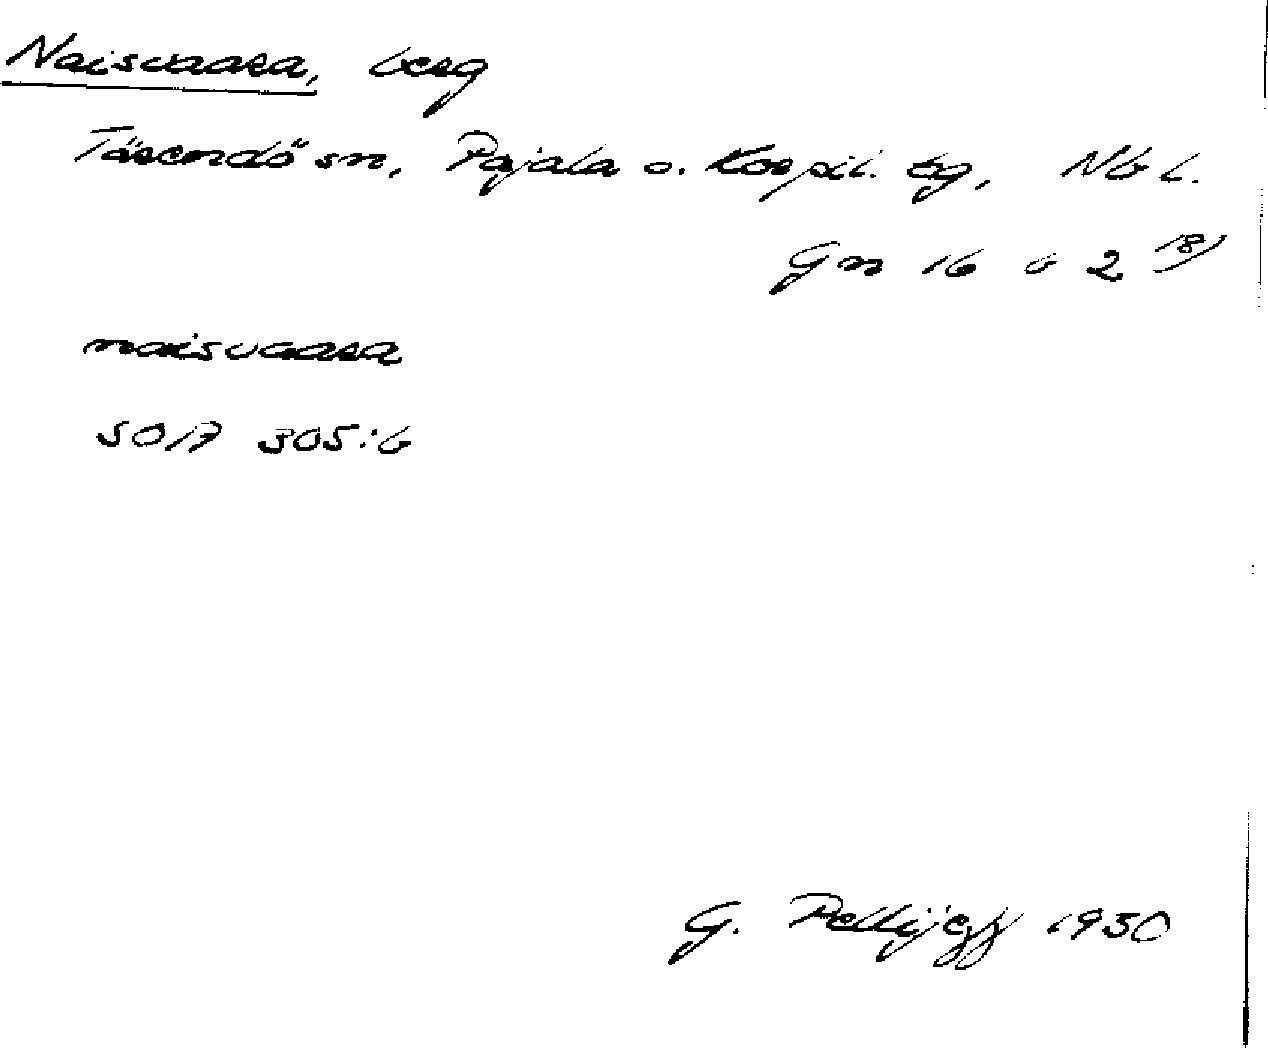 Naisvaara, berg
Tärendö sn, Pajala o. Korpil. tg, Nb l.
Gn 16 b 2 18)
naisvaara
SOA 305:6
G. Pellijeff 1950